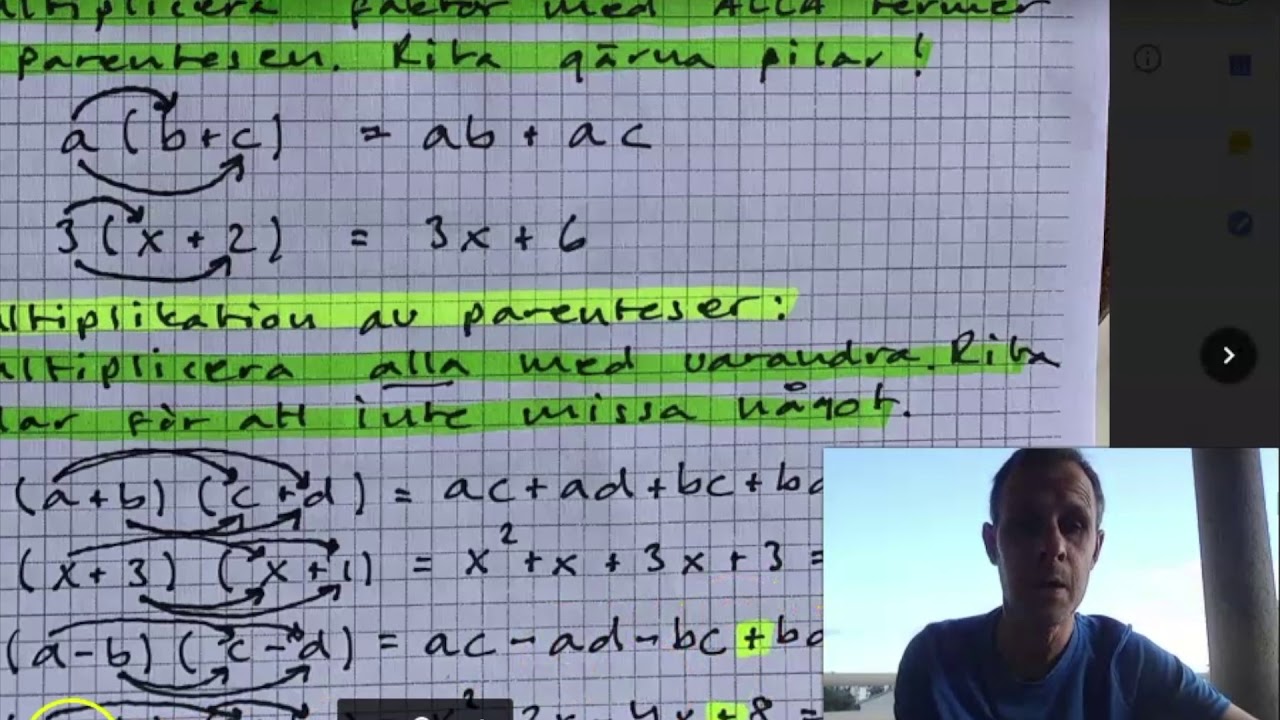 ultiplicera faktor med ALLA termer
parentesen. Rita gärna pilar!
a(b+c) = ab + ac
3(x+2) = 3x+6
ultiplikation av parenteser:
ultiplicera alla med varandra. Rita
lar för att inte missa något.
(a+b)(c+d) = ac+ad+bc+bd
(x+3)(x+1) = x²+x+3x+3 =
(a-b)(c-d) = ac-ad-bc+bd